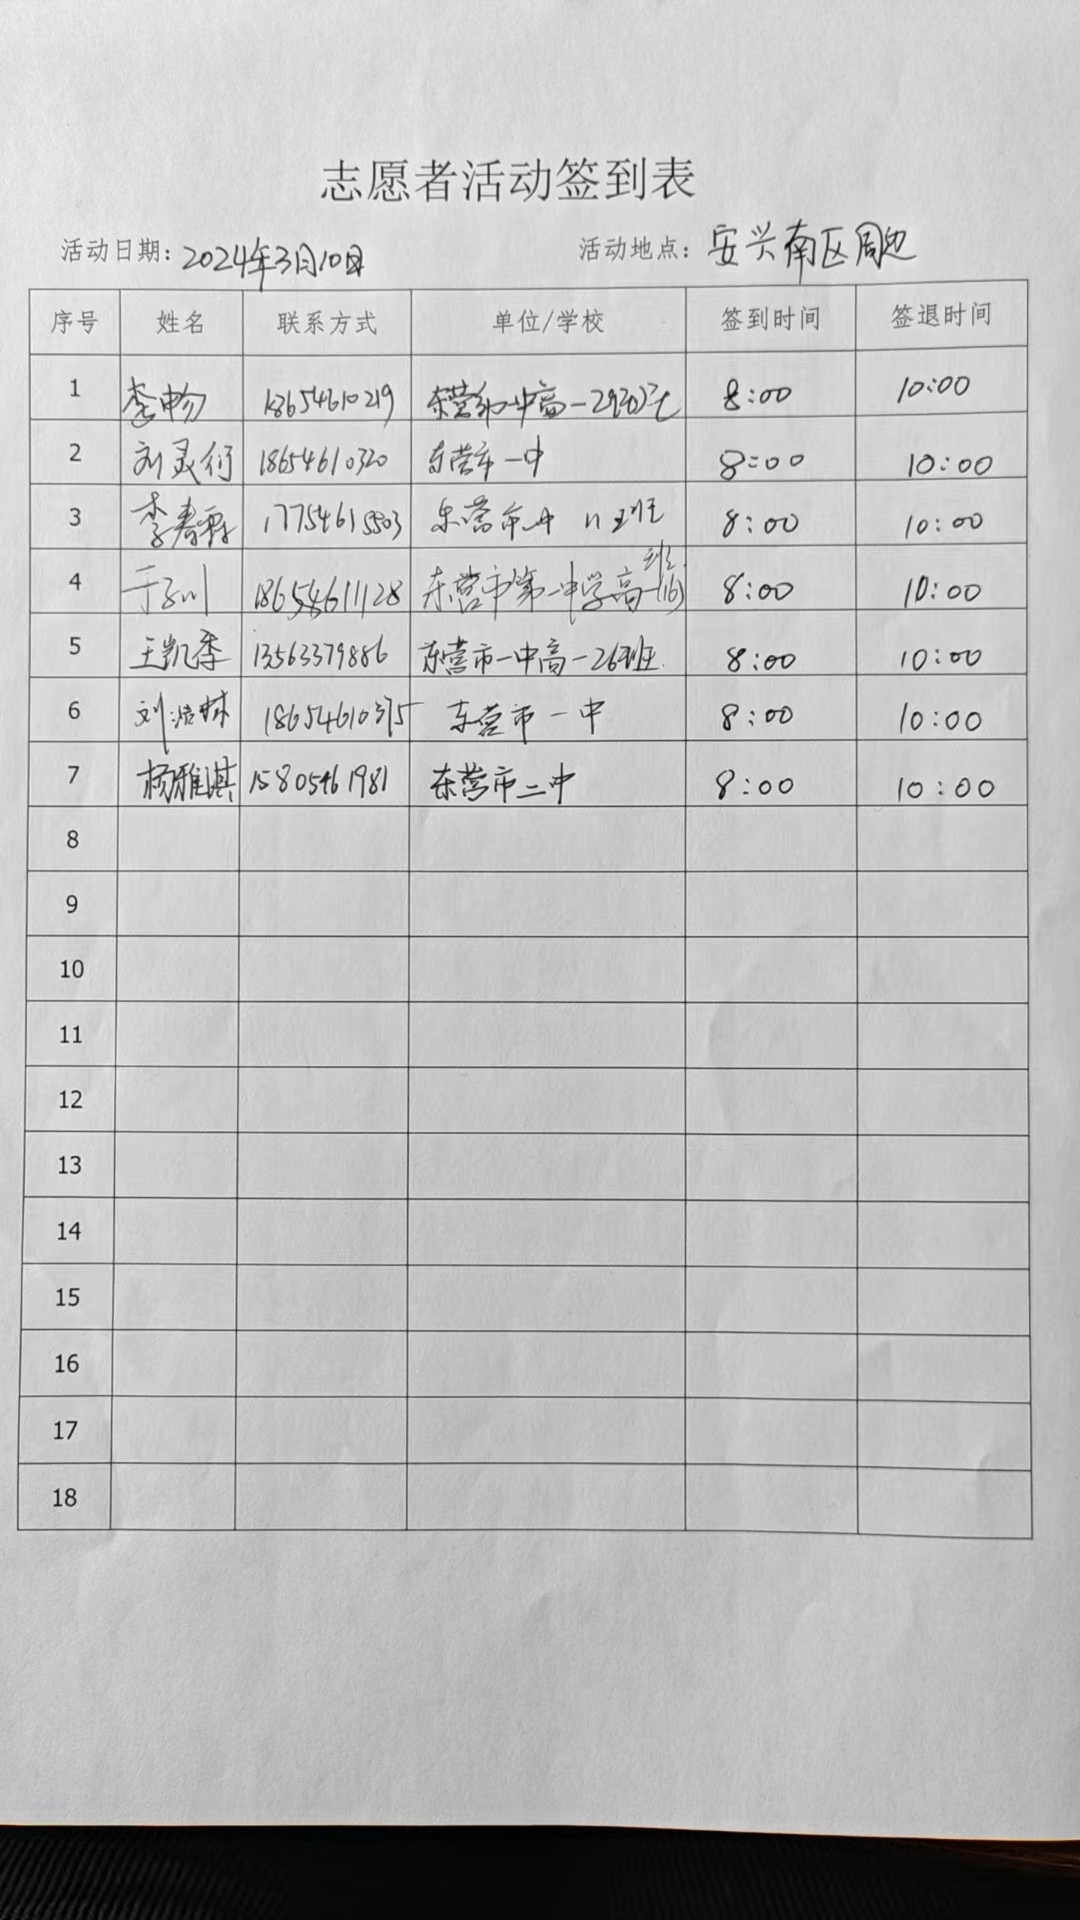 志愿者活动签到表
活动日期: 2024年3月10日 活动地点: 安兴南区周边
序号 姓名 联系方式 单位/学校 签到时间 签退时间
1 李畅 18654610219 东营市一中高一29班 8:00 10:00
2 刘灵衍 18654610320 东营市一中 8:00 10:00
3 李春霖 17754615503 东营市一中 11班 8:00 10:00
4 于子川 18654611128 东营市第一中学高一(16)班 8:00 10:00
5 王凯季 13563379886 东营市一中高一26班 8:00 10:00
6 刘浩林 18654610375 东营市一中 8:00 10:00
7 杨雅淇 15805461981 东营市二中 8:00 10:00
8
9
10
11
12
13
14
15
16
17
18